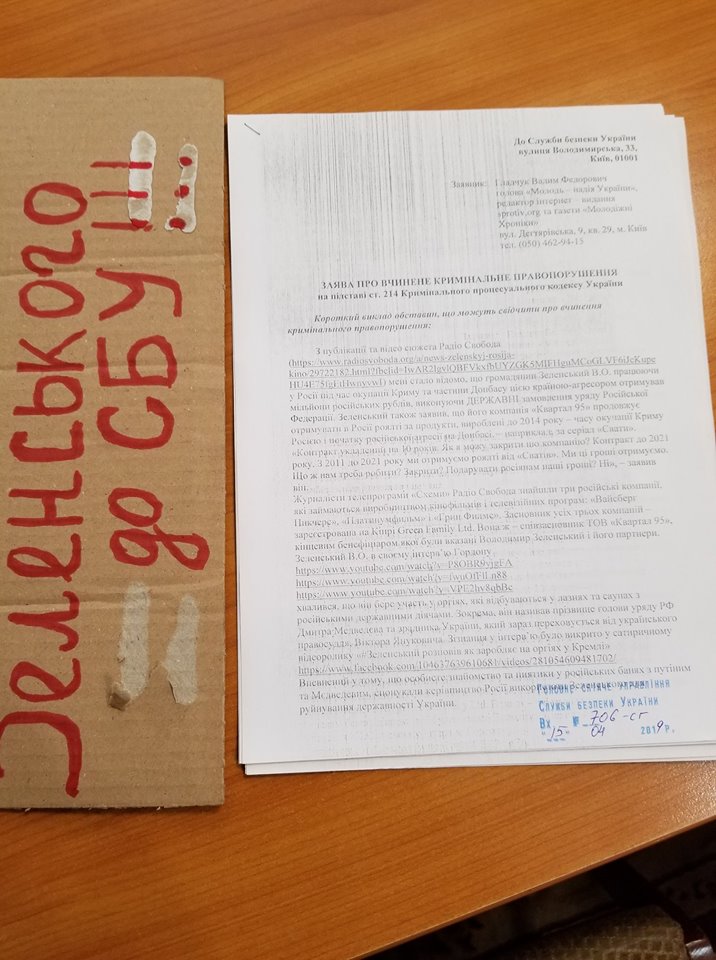 Зеленського
до СБУ !!!
До Служби безпеки України
вулиця Володимирська, 33,
Київ, 01001
Заявник: Гладчук Вадим Федорович
голова «Молодь – надія України»,
редактор інтернет – видання
sprotiv.org та газети «Молодіжні
Хроніки»
вул. Дегтярівська, 9, кв. 29, м. Київ
тел. (050) 462-94-15
ЗАЯВА ПРО ВЧИНЕНЕ КРИМІНАЛЬНЕ ПРАВОПОРУШЕННЯ
на підставі ст. 214 Кримінального процесуального кодексу України
Короткий виклад обставин, що можуть свідчити про вчинення
кримінального правопорушення:
З публікації та відео сюжета Радіо Свобода
(https://www.radiosvoboda.org/a/news-zelenskyj-rosija-
мені стало відомо, що громадянин Зеленський В.О. працюючи
у Росії під час окупації Криму та частини Донбасу цією країною-агресором отримував
мільйони російських рублів, виконуючи ДЕРЖАВНІ замовлення уряду Російської
Федерації. Зеленський також заявив, що його компанія «Квартал 95» продовжує
отримувати в Росії роялті за продукти, вироблені до 2014 року – часу окупації Криму
Росією і початку російської агресії на Донбасі, – наприклад, за серіал «Свати».
«Контракт укладений на 10 років. Як я можу закрити цю компанію? Контракт до 2021
року. З 2011 до 2021 року ми отримуємо роялті від «Сватів». Ми ці гроші отримуємо.
Що ж нам треба робити? Закрити? Подарувати росіянам наші гроші? Ні», – заявив
він.
Журналісти телепрограми «Схеми» Радіо Свобода знайшли три російські компанії,
які займаються виробництвом кінофільмів і телевізійних програм: «Вайсберг
Пикчерс», «Платинумфильм» і «Грин Филмс». Засновник усіх трьох компаній –
зареєстрована на Кіпрі Green Family Ltd. Вона ж – співзасновник ТОВ «Квартал 95»,
кінцевим бенефіціаром якої були вказані Володимир Зеленський і його партнери.
Зеленський В.О. в своєму інтерв'ю Гордону
https://www.youtube.com/watch?v=P8OBR9vjgFA
https://www.youtube.com/watch?v=
https://www.youtube.com/watch?v=VPE2hy8qbBc
хвалився, що він бере участь у оргіях, які відбуваються у лазнях та саунах з
російськими державними діячами. Зокрема, він називав прізвище голови уряду РФ
Дмитра Медведєва та зрадника України, який зараз переховується від українського
правосуддя, Віктора Януковича. Зізнання у інтерв'ю було викрито у сатиричному
відеоролику «#Зеленський розповів як заробляє на оргіях у Кремлі»
https://www.facebook.com/104637639610681/videos/281054609481702/
Впевнений у тому, що особисте знайомство та пиятики у російських банях з путіним
та Медведєвим, спонукали керівництво Росії
руйнування державності України.
Служби безпеки України
Вх № 706-СГ
"15" 04 2019 р.